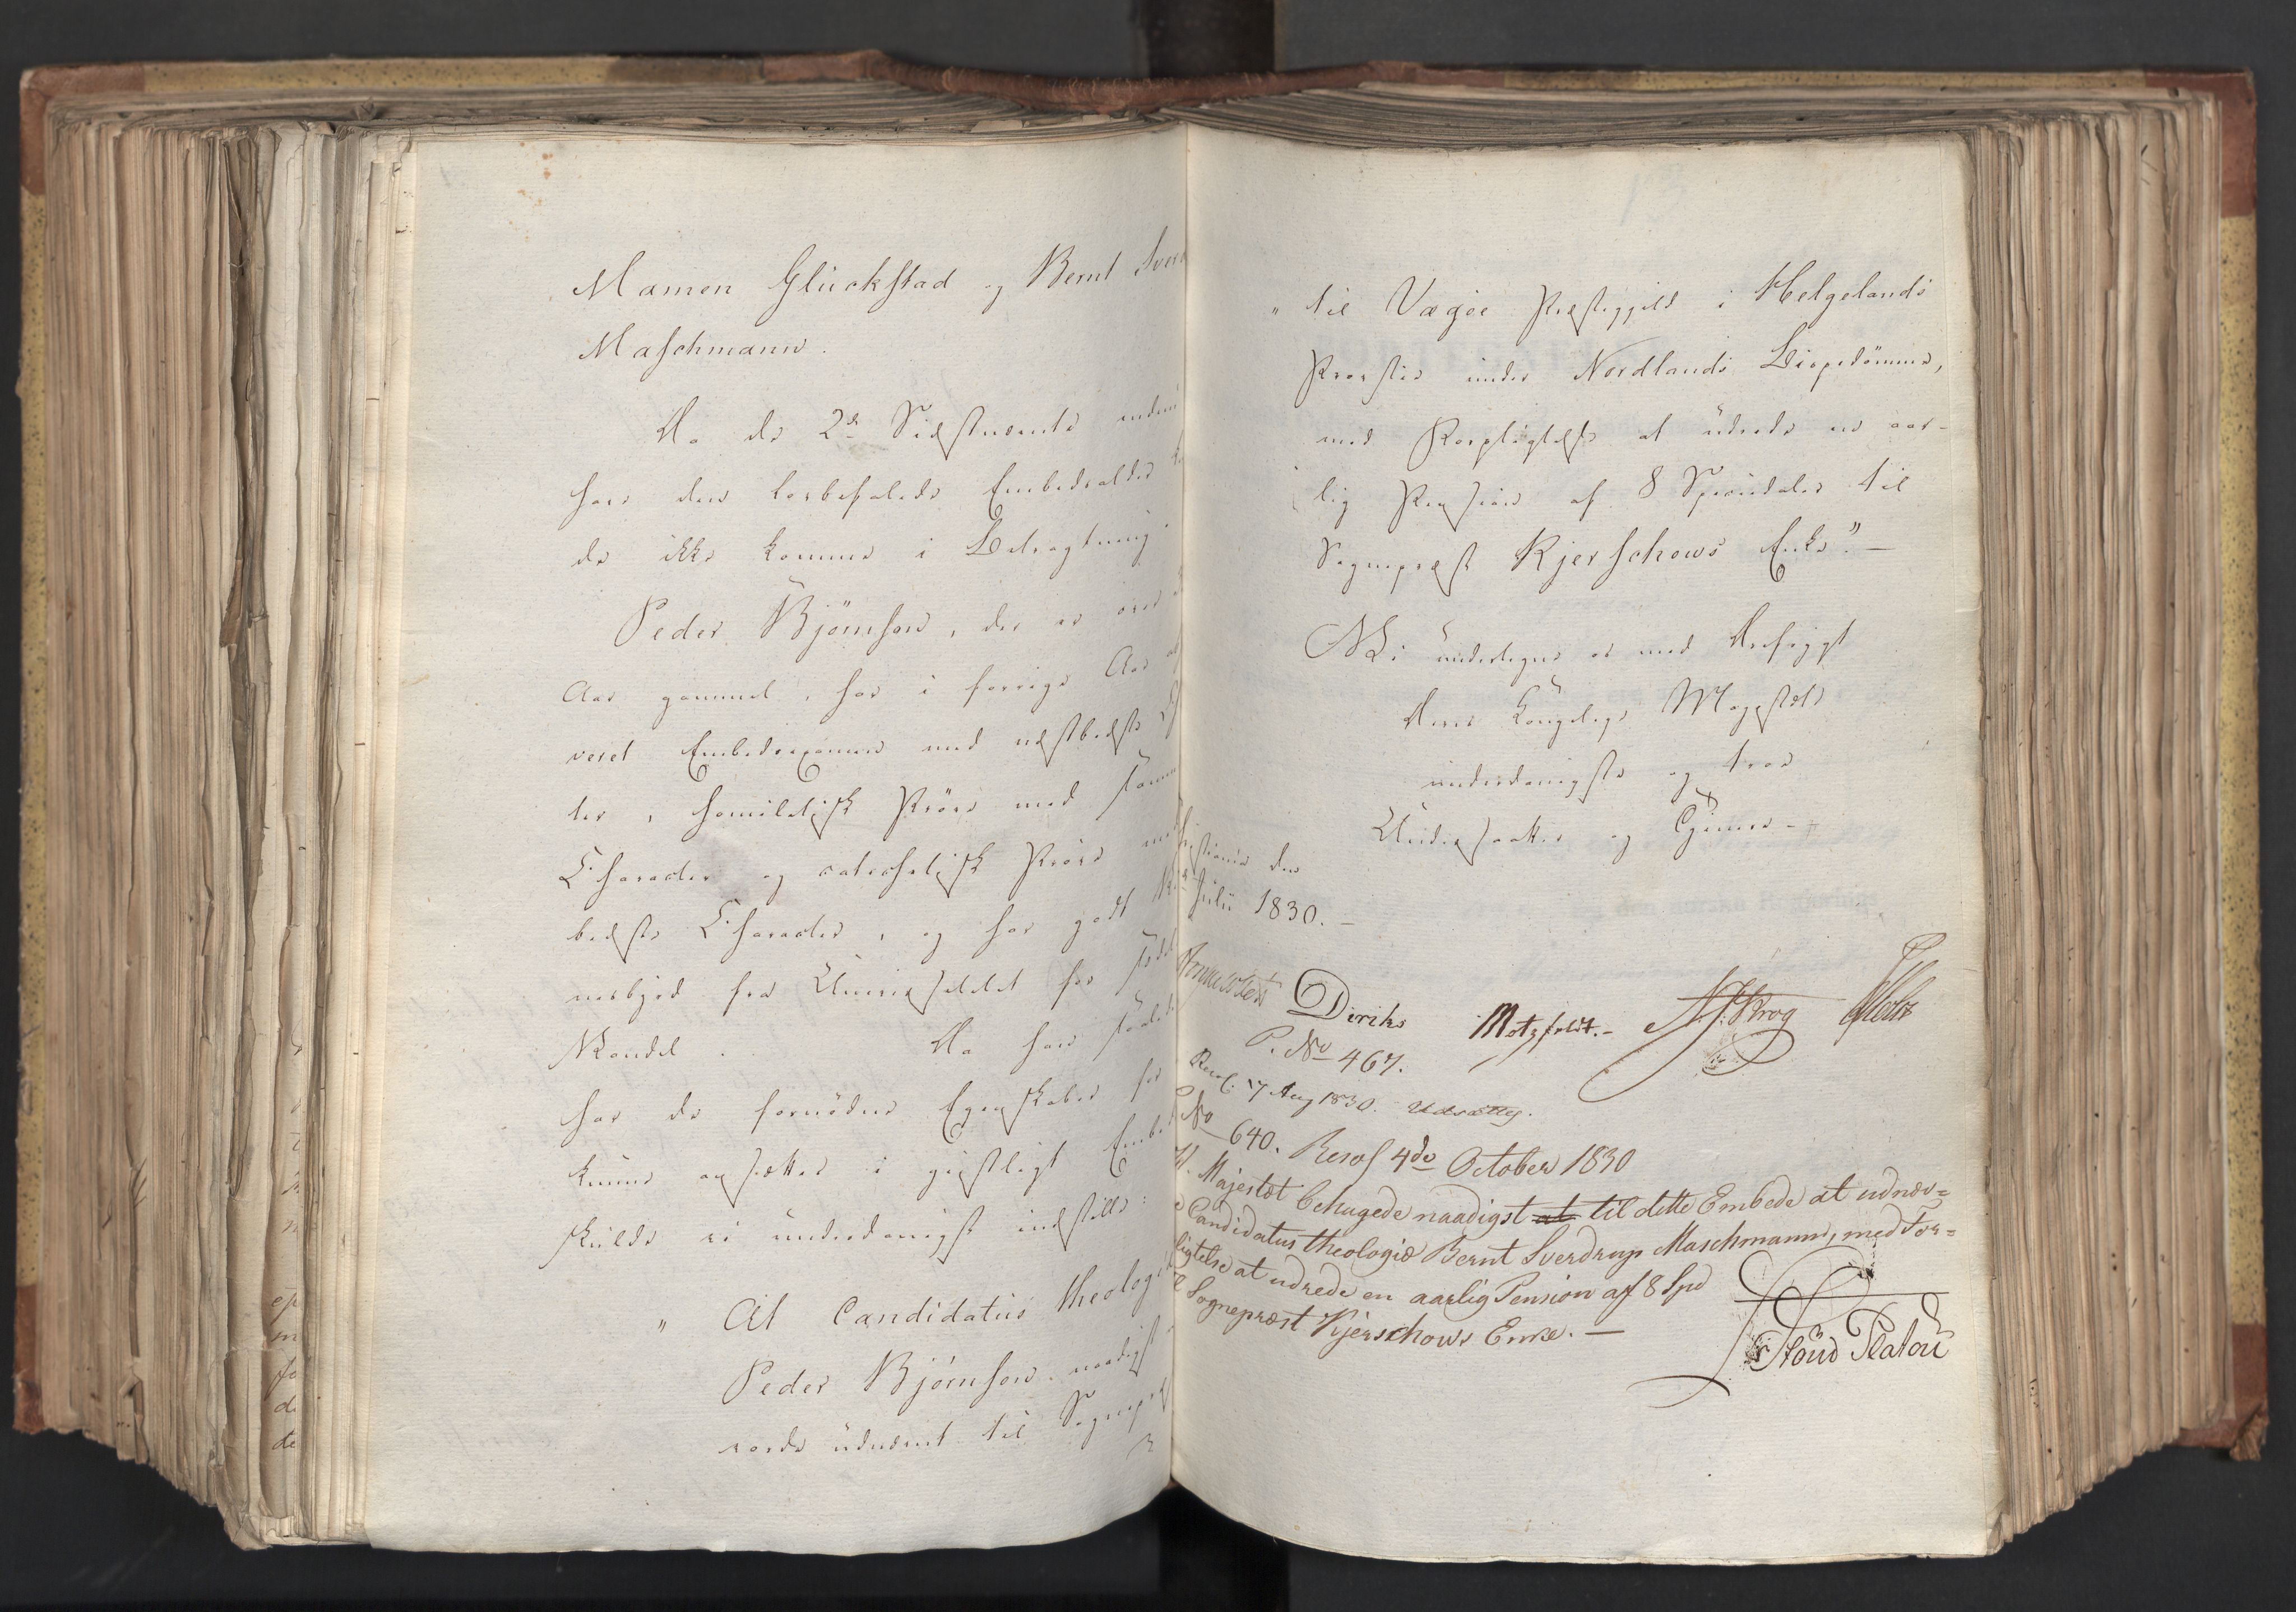 Mamen Glückstad og Bernt Sver
Maschmann.
Da de 2de Sidstnævnte endnu
have den lovbefalede Embedsalder
de ikke komme i Betragtning.
Peder Björnson, der er over
Aar gammel, har i forrige Aar
veret Embedsexamen med næstbedste
ter, homiletisk Prøve med samme
Charakter og catechetisk Prøve med
bedste Charakter, og har godt
nesbyrd fra Universitetet for
Vandel. Da han saaledes
har de fornødne Egenskaber for
kunne ansættes i geistligt Embe
skulde vi underdanigst indstille:
" At Candidatus theologi
Peder Björnson naadigst
vorde udnævnt til Sognepræst
" til Vægøe Præstegjeld i Helgelands
Provstie under Nordlands Bispedömme,
med Forpligtelse at udrede en aar-
lig Pension af 8 Speciedaler til
Sognepræst Kjerschows Enke." —
Vi undertegne os med Ærefrygt
Deres Kongelige Majestæts
underdanigste og troe
Undersaatter og Tjenere -
istiania den
Julii 1830. —
Diriks Motzfeldt. - Krog Holst
P. No 467.
Resol: 17 Aug 1830. Udsættes.
No 640. Resol 4de October 1830
H. Majestæt behagede naadigst at til dette Embede at udnæv=
Candidatus theologiæ Bernt Sverdrup Maschmann, med For=
ligtelse at udrede en aarlig Pension af 8 Spd
Sognepræst Kjerschows Enke. —
Stoud Platou